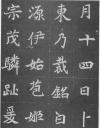 月十四日卜
東乃裁銘曰
源伊始苞姬
宗茂麟趾爰